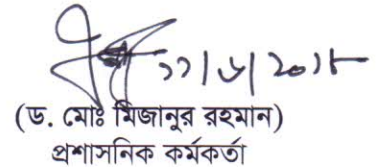 ২০১৮
(ড. মোঃ মিজানুর রহমান)
প্রশাসনিক কর্মকর্তা